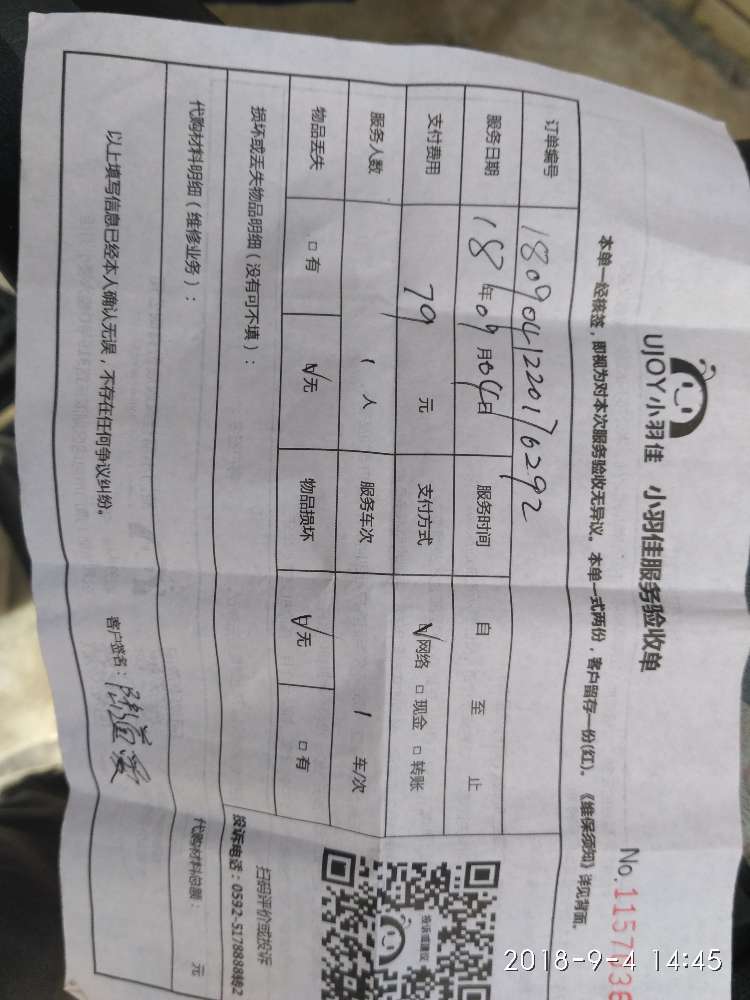 UJOY小羽佳 小羽佳服务验收单
本单一经核签，即视为对本次服务验收无异议。本单一式两份，客户留存一份(红)。《维保须知》详见背面。
订单编号 1809041220176292
服务日期 18年09月04日 服务时间 自 至 止
支付费用 79 元 支付方式 ☑网络 □现金 □转账
服务人数 1 人 服务车次 1 车/次
物品丢失 □有 ☑无 物品损坏 ☑无 □有
损坏或丢失物品明细（没有可不填）：
扫码评价或投诉
投诉电话：0592-5178888转2
投诉或建议
代购材料明细（维修业务）： 代购材料总额： 元
以上填写信息已经本人确认无误，不存在任何争议纠纷。 客户签名：
2018-9-4 14:45